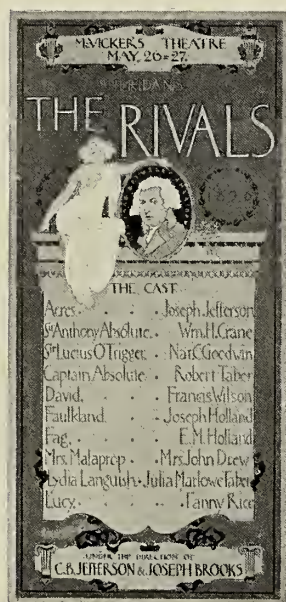 McVICKER'S THEATRE
MAY 26=27.
SHERIDAN'S
THE RIVALS
THE CAST
Acres. . . . Joseph Jefferson
Sir Anthony Absolute. . Wm. H. Crane
Sir Lucius O'Trigger. . Nat C. Goodwin
Captain Absolute. . Robert Taber
David. . . . Francis Wilson
Faulkland. . . Joseph Holland
Fag. . . . E. M. Holland
Mrs. Malaprop. . Mrs. John Drew
Lydia Languish. Julia Marlowe Taber
Lucy. . . . Fanny Rice
UNDER THE DIRECTION OF
C.B. JEFFERSON & JOSEPH BROOKS